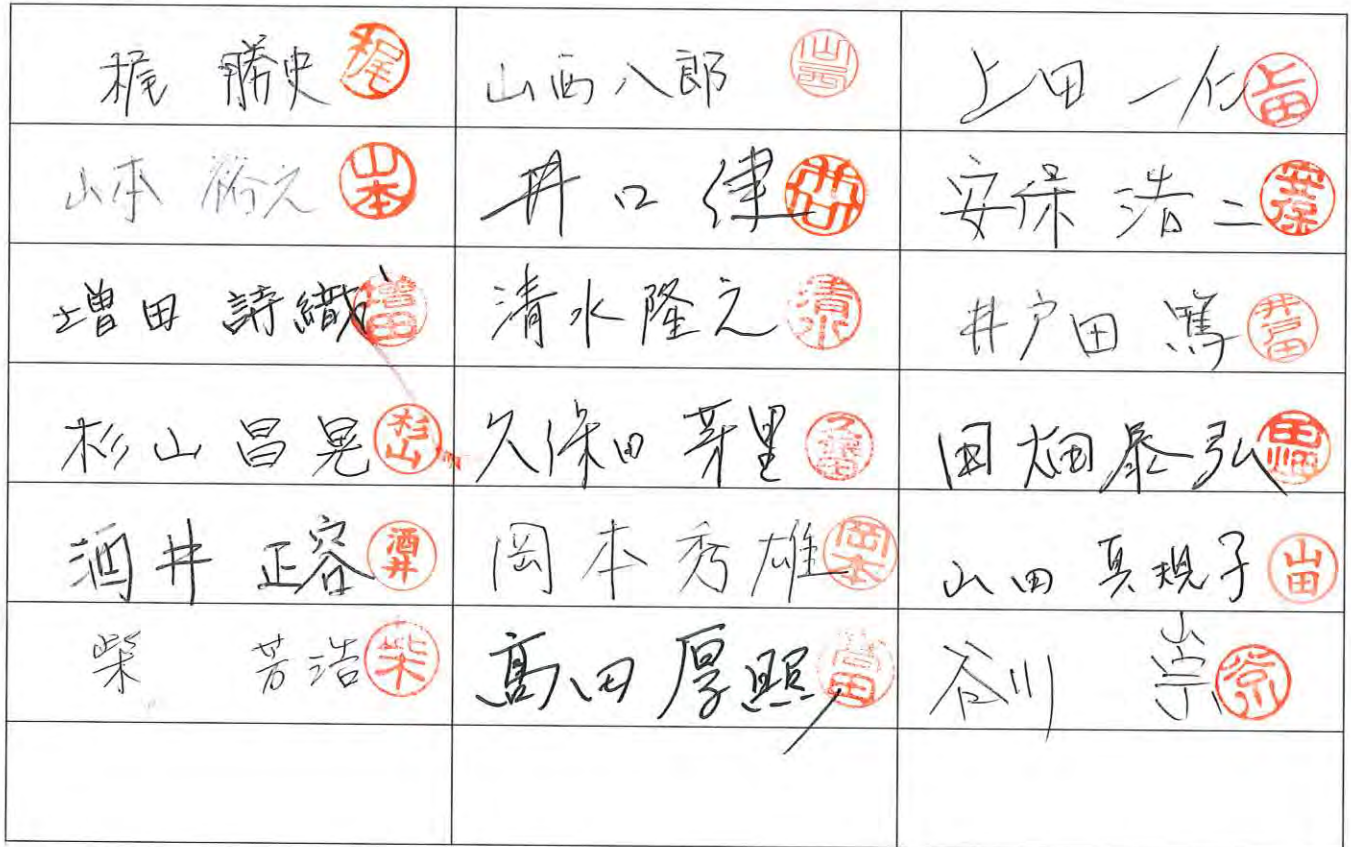 梶 勝史 梶 山西八郎 山西 上田 一仁 上田
山本 裕之 山本 井口 健 井口 安保 浩二 安保
増田 詩織 増田 清水隆之 清水 井戸田 篤 井戸田
杉山 昌晃 杉山 久保田 芽里 久保田 田畑泰弘 田畑
酒井 正容 酒井 岡本秀雄 岡本 山田 真規子 山田
柴 芳浩 柴 髙田 厚照 髙田 谷川 崇 谷川